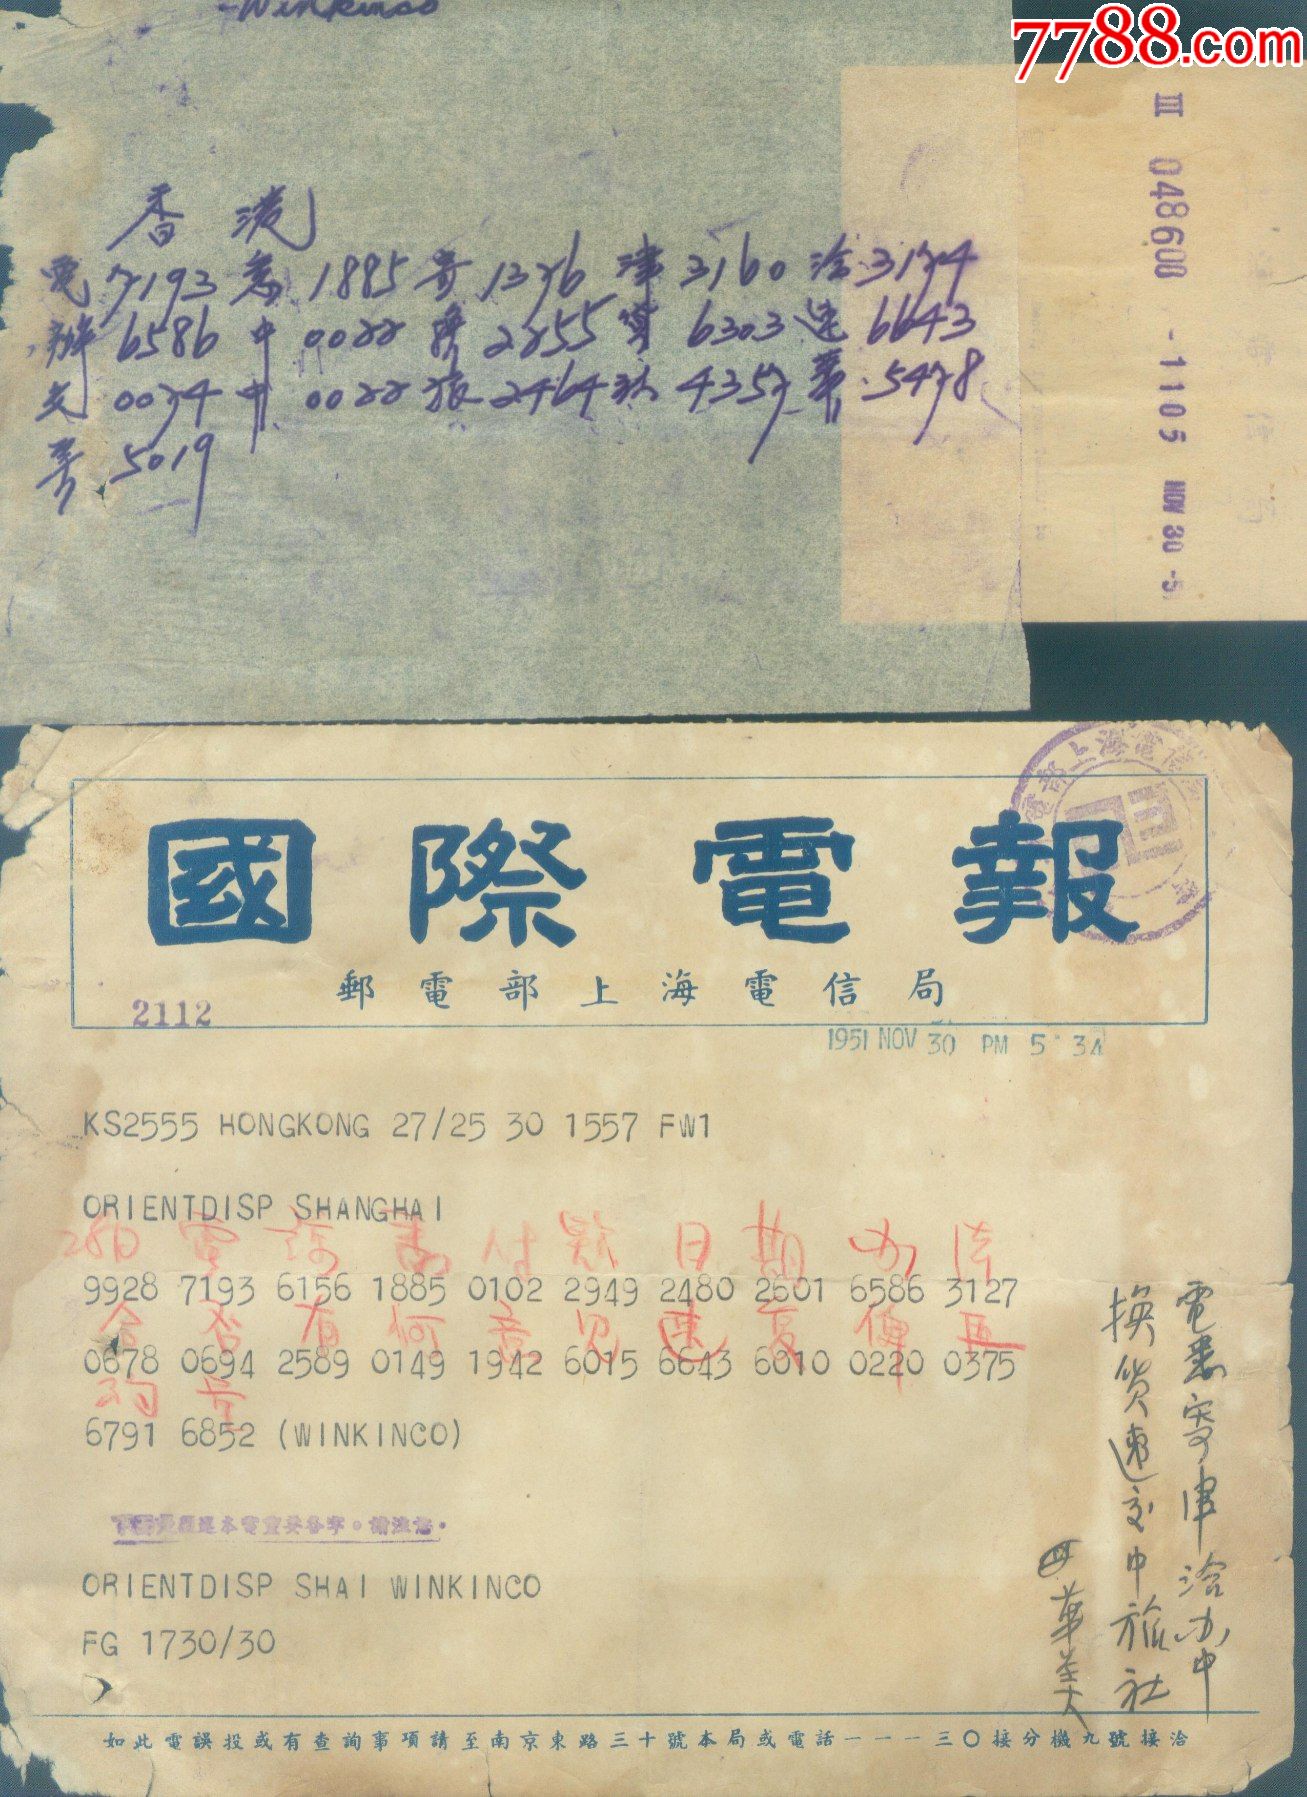 -Winkinco
7788.com
III 048608 -1105 NOV 30 -5
香 港
電 7193 悉 1885 寄 1376 津 3160 洽 3174
辦 6586 中 0022 換 2255 貨 6303 速 6643
交 0074 中 0022 旅 2464 社 4357 華 5478
美 5019
國際電報
郵電部上海電信局
2112
1951 NOV 30 PM 5 34
KS2555 HONGKONG 27/25 30 1557 FW1
ORIENTDISP SHANGHAI
28日 電 請 悉 付 款 日 期 办 法
9928 7193 6156 1885 0102 2949 2480 2601 6586 3127
合 否 有 何 意 見 速 复 俾 再
0678 0694 2589 0149 1942 6015 6643 6010 0220 0375
詢
6791 6852 (WINKINCO)
ORIENTDISP SHAI WINKINCO
FG 1730/30
電悉寄津洽办中
換货速交中旅社
華美
如此電誤投或有查詢事項請至南京東路三十號本局或電話一一一三〇接分機九號接洽